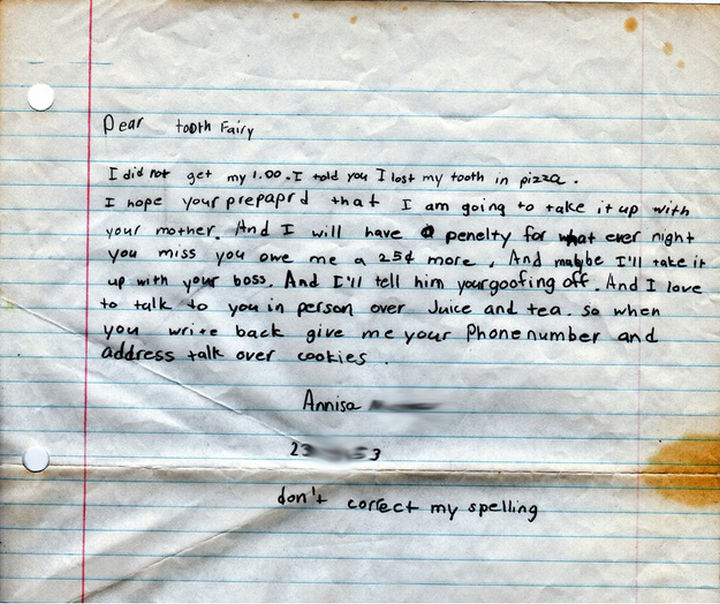 Dear tooth Fairy
I did not get my 1.00. I told you I lost my tooth in pizza.
I hope your prepaprd that I am going to take it up with
your mother. And I will have a penelty for what ever night
you miss you owe me a 25¢ more, And maybe I'll take it
up with your boss. And I'll tell him your goofing off. And I love
to talk to you in person over Juice and tea. so when
you write back give me your Phone number and
address talk over cookies.
Annisa
23 3
don't correct my spelling